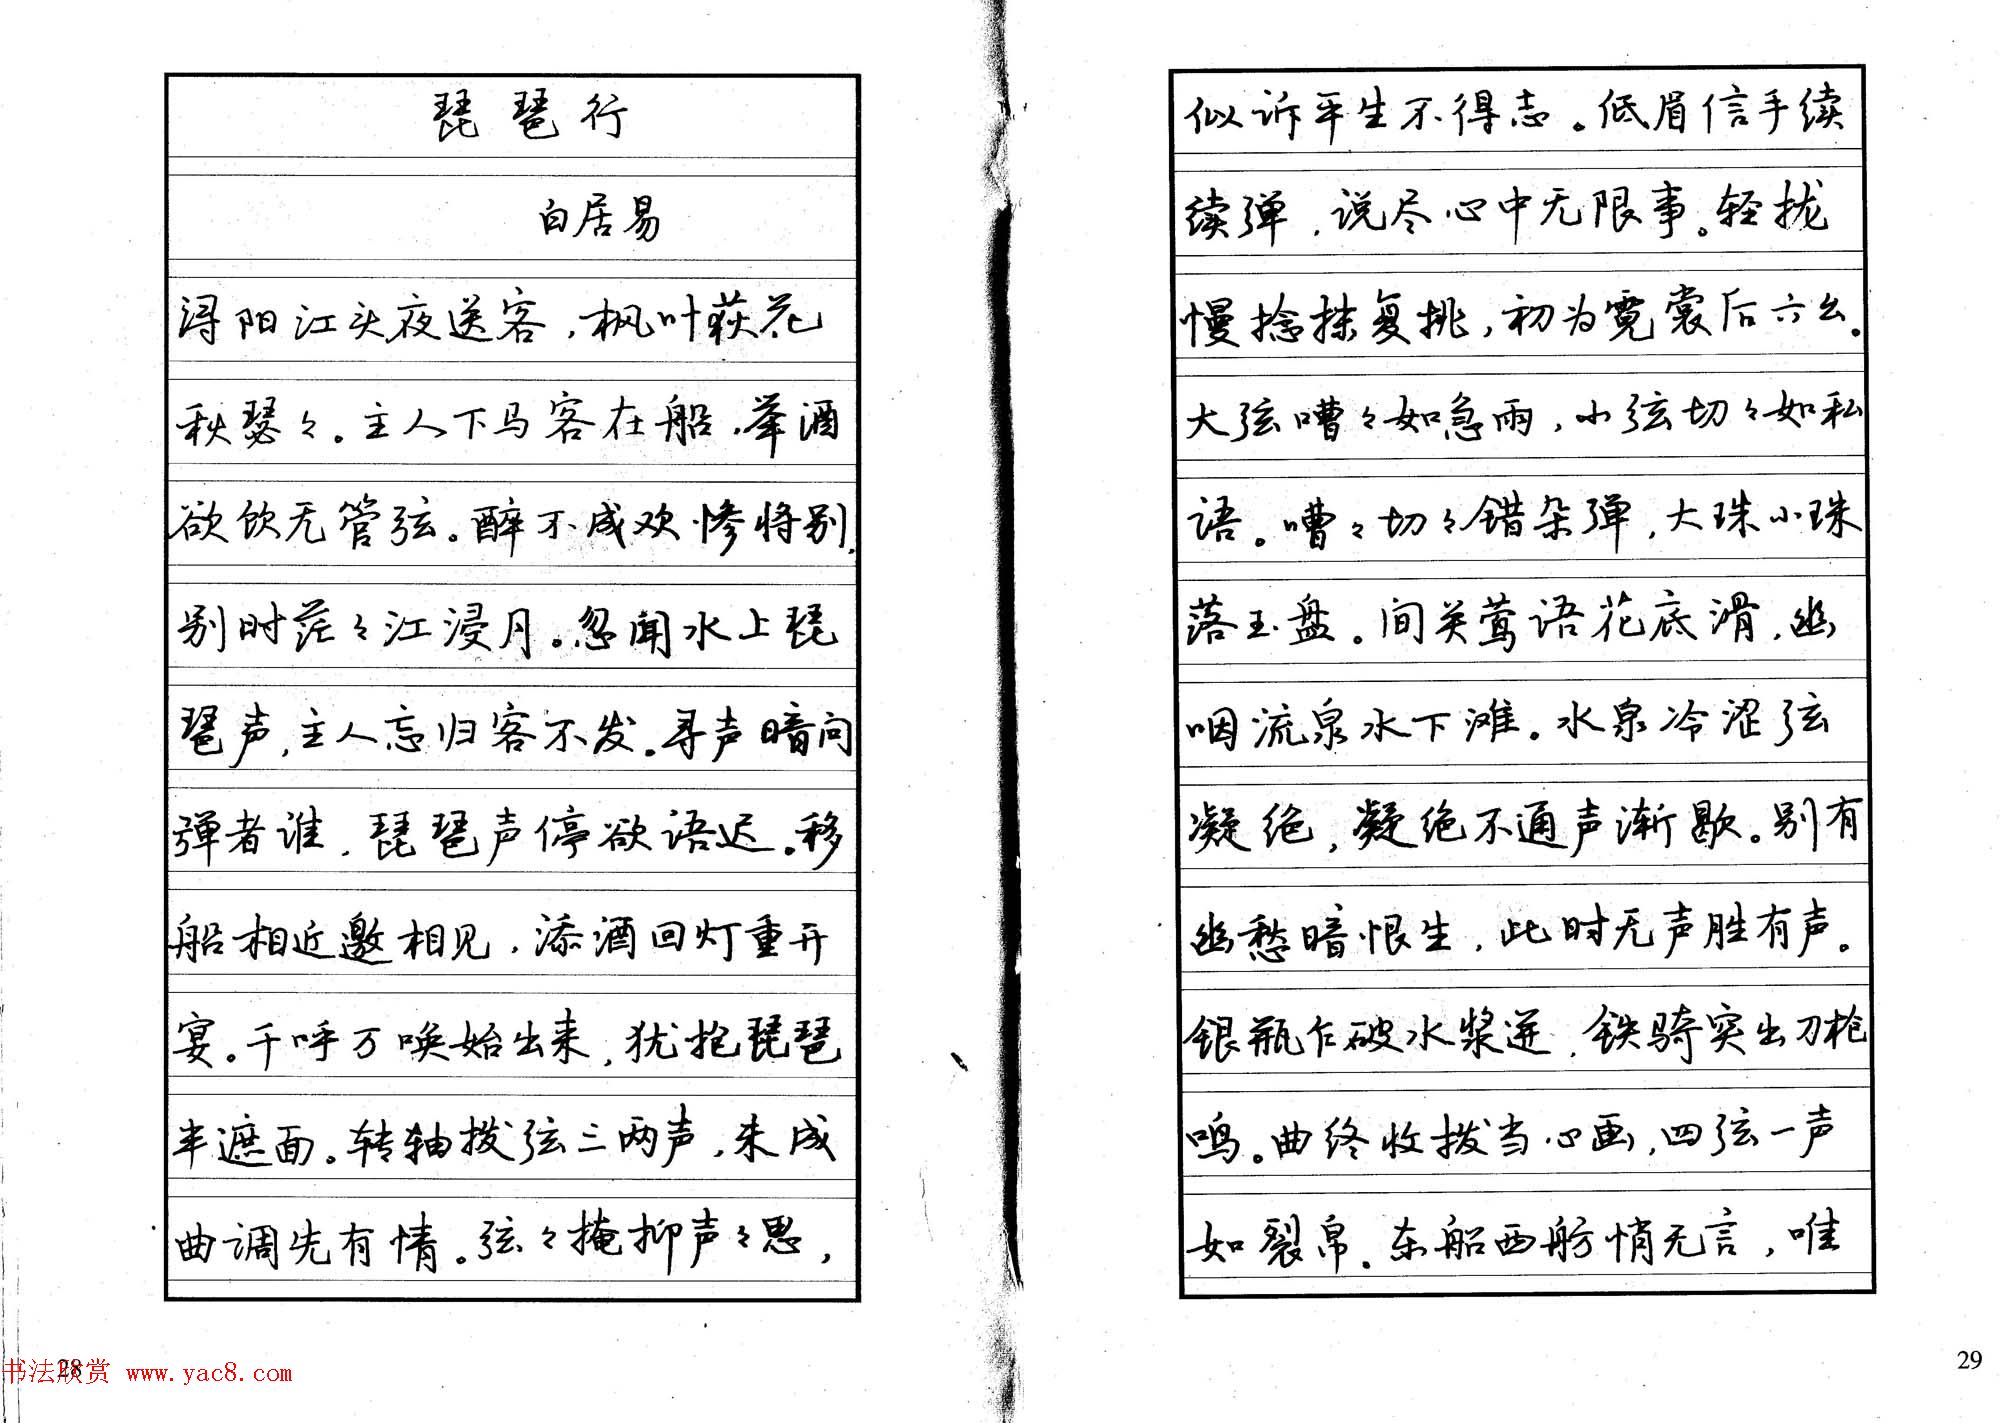 琵琶行
白居易
浔阳江头夜送客，枫叶荻花
秋瑟々。主人下马客在船，举酒
欲饮无管弦。醉不成欢惨将别，
别时茫々江浸月。忽闻水上琵
琶声，主人忘归客不发。寻声暗问
弹者谁，琵琶声停欲语迟。移
船相近邀相见，添酒回灯重开
宴。千呼万唤始出来，犹抱琵琶
半遮面。转轴拨弦三两声，未成
曲调先有情。弦々掩抑声々思，
28
书法欣赏 www.yac8.com
似诉平生不得志。低眉信手续
续弹，说尽心中无限事。轻拢
慢捻抹复挑，初为霓裳后六幺。
大弦嘈々如急雨，小弦切々如私
语。嘈々切々错杂弹，大珠小珠
落玉盘。间关莺语花底滑，幽
咽流泉水下滩。水泉冷涩弦
凝绝，凝绝不通声渐歇。别有
幽愁暗恨生，此时无声胜有声。
银瓶乍破水浆迸，铁骑突出刀枪
鸣。曲终收拨当心画，四弦一声
如裂帛。东船西舫悄无言，唯
29